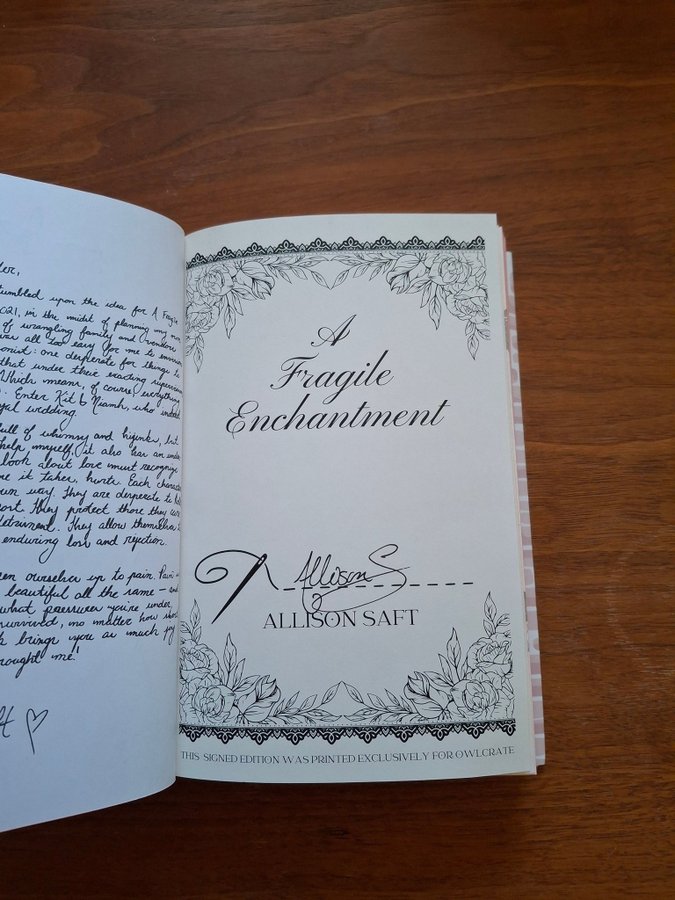 tumbled upon the idea for A Fragile
021, in the midst of planning my own
of wrangling family and vendors
was all too easy for me to
onist: one desperate for things to
that under their exacting supervision
Which means, of course, everything
Enter Kit & Niamh, who
wedding.
full of whimsy and hijinks, but
help myself, it also has an
book about love must recognize
it takes, hurts. Each
own way. They are desperate to
They protect those they
detriment. They allow themselves
enduring loss and rejection.
ourselves up to pain. Pain
beautiful all the same – and
what pressures you're under,
survived, no matter how
brings you as much joy
brought me!
A
Fragile
Enchantment
Allison S
ALLISON SAFT
THIS SIGNED EDITION WAS PRINTED EXCLUSIVELY FOR OWLCRATE